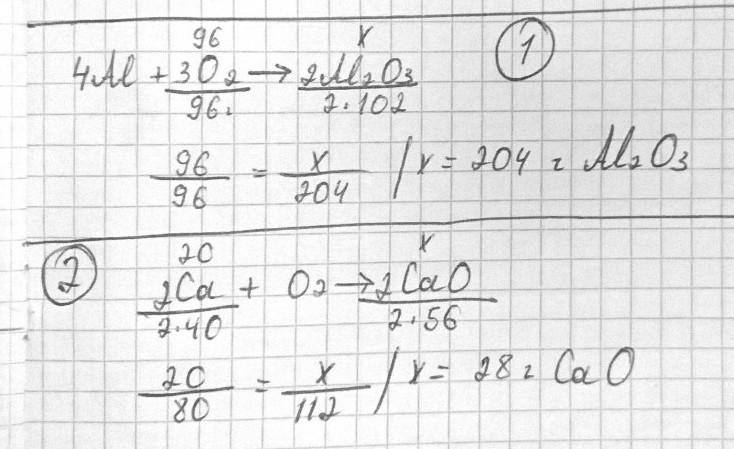 96 x ①
4Al + 3O₂ → 2Al₂O₃
96г 2·102
96/96 = x/204 / x = 204 г Al₂O₃
② 20 x
2Ca + O₂ → 2CaO
2·40 2·56
20/80 = x/112 / x = 28 г CaO